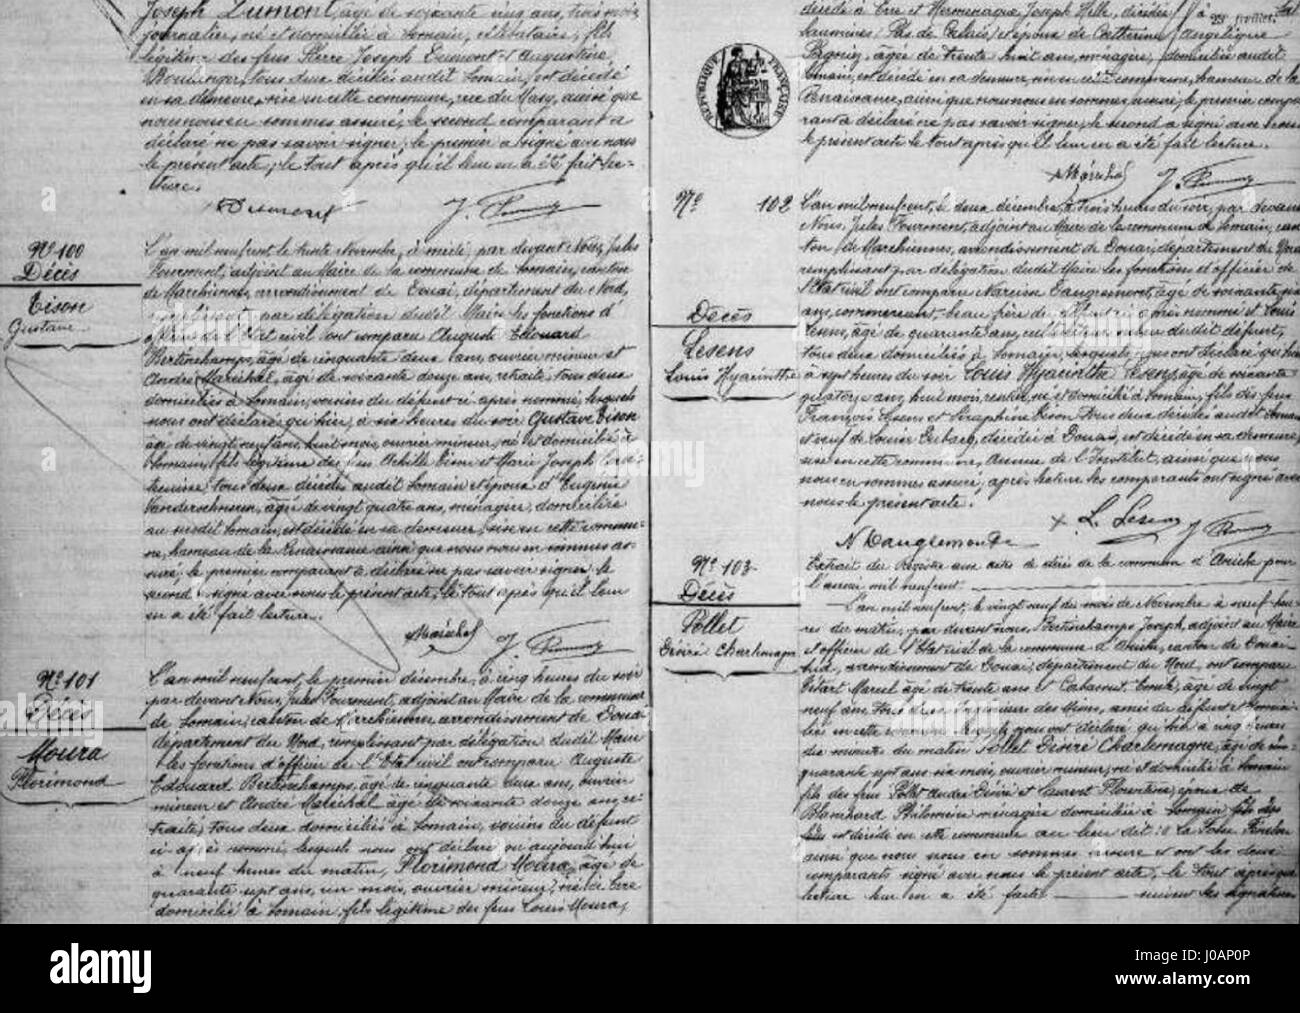 Joseph Dumont, âgé de soixante cinq ans, trois mois
journalier, né et domicilié à Somain, célibataire, fils
légitime des feus Pierre Joseph Dumont et Augustine
tous deux décédés audit Somain, est décédé
en sa demeure, sise en cette commune, rue du Marq, ainsi que
nous nous en sommes assuré, le second comparant a
déclaré ne pas savoir signer, le premier a signé avec nous
le présent acte; le tout après qu'il leur en a été fait lec-
ture.
Nº 100
Décès
Tison
Gustave
L'an mil neufcent le trente Novembre, à midi, par devant Nous, Jules
Fourmont, adjoint au Maire de la commune de Somain, canton
de Marchiennes, arrondissement de Douai, département du Nord,
remplissant par délégation dudit Maire les fonctions d'
officier de l'Etat civil ont comparu Auguste Edouard
Bertinchamps, âgé de cinquante deux ans, ouvrier mineur et
André Maréchal, âgé de soixante douze ans, retraité, tous deux
domiciliés à Somain, voisins du défunt ci après nommé, lesquels
nous ont déclaré qu'hier, à six heures du soir Gustave Tison
âgé de vingt neuf ans, huit mois, ouvrier mineur, né et domicilié à
Somain, fils légitime des feus Achille Tison et Marie Joseph
tous deux décédés audit Somain et époux d'Eugénie
âgée de vingt quatre ans, ménagère, domiciliée
au susdit Somain, est décédé en sa demeure, sise en cette commu-
ne, hameau de la Renaissance ainsi que nous nous en sommes as-
suré, le premier comparant a déclaré ne pas savoir signer, le
second a signé avec nous le présent acte, le tout après qu'il leur
en a été fait lecture.
Maréchal
Nº 101
Décès
Moura
Florimond
L'an mil neufcent, le premier décembre, à cinq heures du soir
par devant Nous, Jules Fourmont, adjoint au Maire de la commune
de Somain, canton de Marchiennes arrondissement de Douai
département du Nord, remplissant par délégation dudit Maire
les fonctions d'officier de l'Etat civil ont comparu Auguste
Edouard Bertinchamps, âgé de cinquante deux ans, ouvrier
mineur et André Maréchal âgé de soixante douze ans, re-
traité, tous deux domiciliés à Somain, voisins du défunt
ci après nommé, lesquels nous ont déclaré qu'aujourd'hui
à neuf heures du matin, Florimond Moura, âgé de
quarante sept ans, un mois, ouvrier mineur, né à Erre
domicilié à Somain, fils légitime des feus Louis Moura,
décédé à Erre et Hermenaque Joseph Hille, décédée à
23 juillet
(Pas de Calais), et époux de Catherine Angélique
âgée de trente huit ans, ménagère, domiciliée audit
Somain, est décédé en sa demeure, sise en cette commune, hameau de la
Renaissance, ainsi que nous nous en sommes assuré, le premier compa-
rant a déclaré ne pas savoir signer, le second a signé avec nous
le présent acte le tout après qu'il leur en a été fait lecture.
RÉPUBLIQUE FRANÇAISE
Maréchal
Nº 102
Décès
Lesens
Louis Hyacinthe
L'an mil neufcent, le deux décembre, à trois heures du soir, par devant
Nous, Jules Fourmont, adjoint au Maire de la commune de Somain, can-
ton de Marchiennes, arrondissement de Douai, département du Nord
remplissant par délégation dudit Maire les fonctions d'officier de
l'Etat civil ont comparu Narcisse âgé de soixante
ans, commerçant, beau frère du défunt ci après nommé et Louis
Lesens, âgé de quarante ans, cultivateur, neveu dudit défunt,
tous deux domiciliés à Somain, lesquels nous ont déclaré qu'hier
à sept heures du soir Louis Hyacinthe Lesens, âgé de soixante
quatorze ans, huit mois, rentier, né et domicilié à Somain, fils des feus
François Lesens et Séraphine Tison tous deux décédés audit Somain
et veuf de Louise décédée à Douai, est décédé en sa demeure,
sise en cette commune, Avenue de l'Institut, ainsi que nous
nous en sommes assuré, après lecture les comparants ont signé avec
nous le présent acte.
L. Lesens
Nº 103
Décès
Pollet
Désiré Charlemagne
Extrait du Registre aux actes de décès de la commune d'Aniche pour
l'année mil neufcent.
L'an mil neufcent, le vingt neuf du mois de Novembre à neuf heu-
res du matin, par devant nous, Bertinchamps Joseph, adjoint au Maire
et officier de l'Etat civil de la commune d'Aniche, canton de Douai
Sud, arrondissement de Douai, département du Nord, ont comparu
Marcel âgé de trente ans et Emile, âgé de vingt
neuf ans tous deux Ingénieurs des Mines, amis du défunt et domici-
liés en cette commune lesquels nous ont déclaré qu'hier à cinq heures
dix minutes du matin Pollet Désiré Charlemagne, âgé de cin-
quante sept ans six mois, ouvrier mineur, né et domicilié à Somain
fils des feus Pollet André Désiré et Laurent Florentine, époux de
Blanchard Philomène ménagère domiciliée à Somain
est décédé en cette commune au lieu dit: la Fosse Fénelon
ainsi que nous nous en sommes assuré et ont les deux
comparants signé avec nous le présent acte, le tout après que
lecture leur en a été faite suivent les signatures
alamy
Image ID: J0AP0P
www.alamy.com